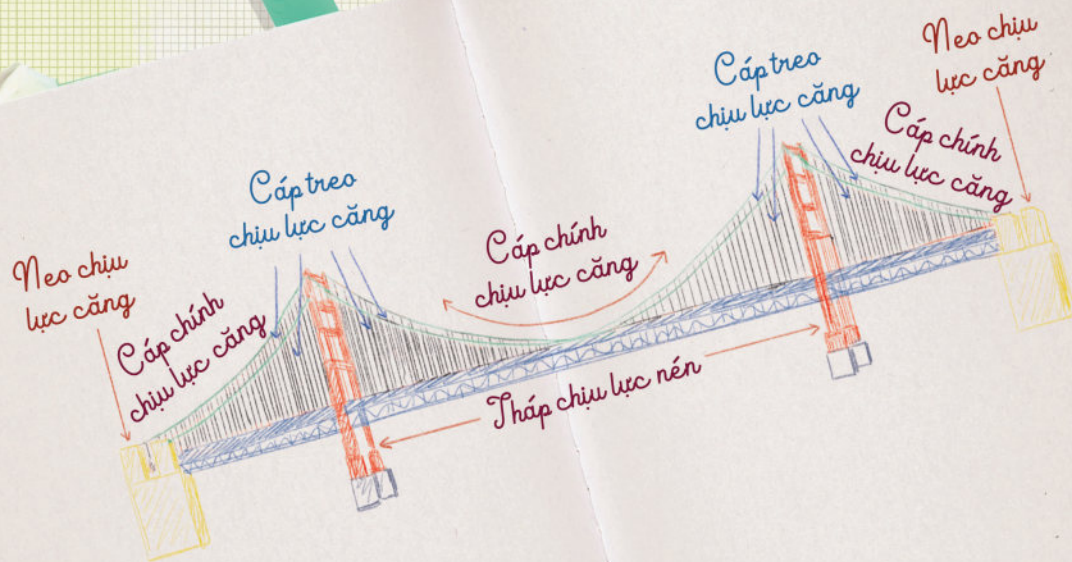 Neo chịu
lực căng
Cáp chính
chịu lực căng
Cáp treo
chịu lực căng
Cáp chính
chịu lực căng
Tháp chịu lực nén
Cáp treo
chịu lực căng
Cáp chính
chịu lực căng
Neo chịu
lực căng